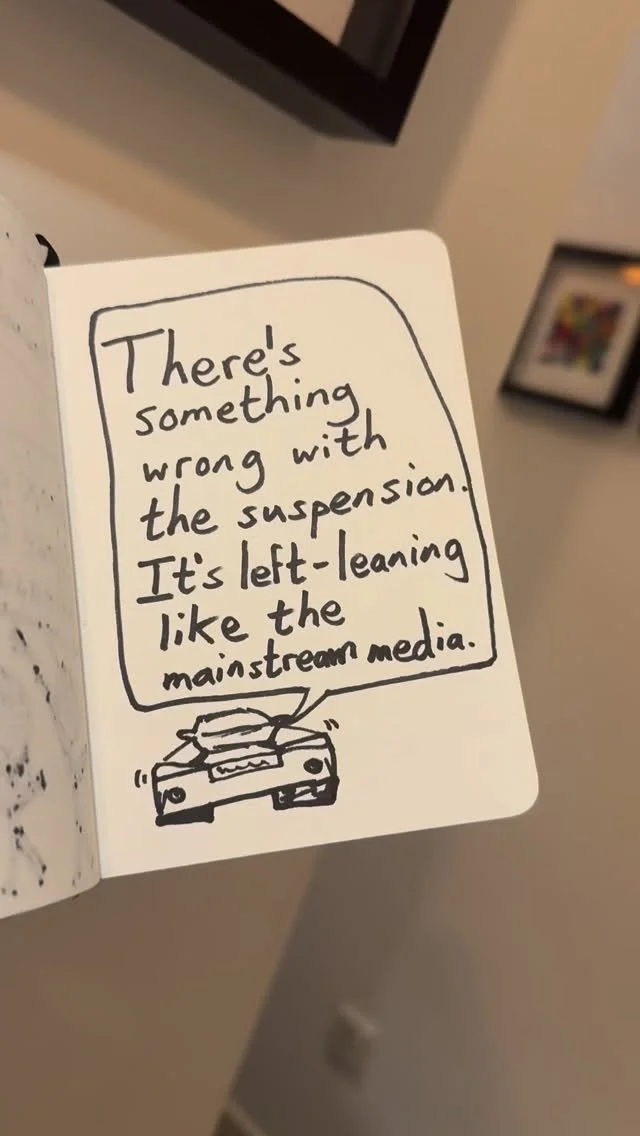 There's
something
wrong with
the suspension.
It's left-leaning
like the
mainstream media.